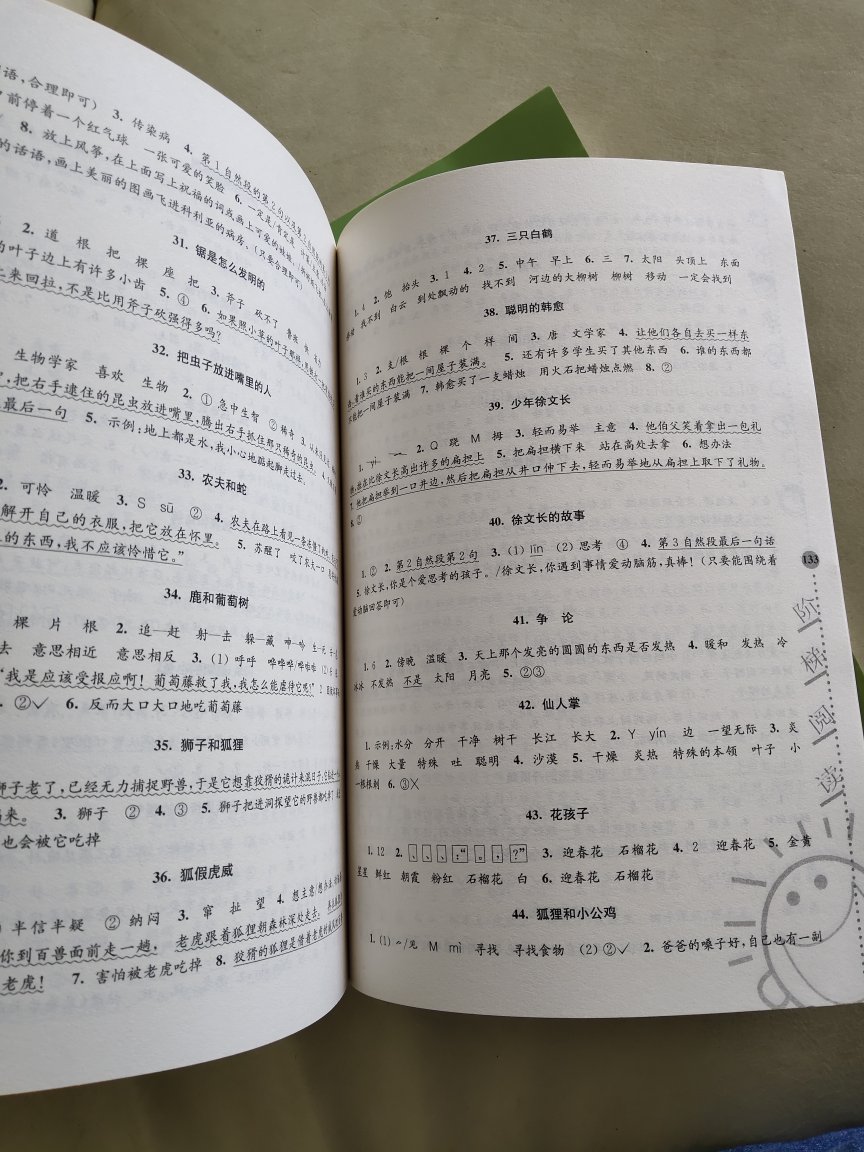 语,合理即可) 3. 传染病 4. 第1自然段的第2句
前停着一个红气球 一张可爱的笑脸 6. 一定是/肯定是
8. 放上风筝,在上面写上祝福的词或画上可爱的娃娃
的话语,画上美丽的图画飞进科利亚的病房。(只要合理即可)
31. 锯是怎么发明的
2. 道 根 把 棵 座 把 3. 斧子 砍不了
的叶子边上有许多小齿 5. ④ 6. 如果照小草的叶子那样
上来回拉,不是比用斧子砍强得多吗?
32. 把虫子放进嘴里的人
生物学家 喜欢 生物 2. ① 急中生智 ② 稀奇
,把右手逮住的昆虫放进嘴里,腾出右手抓住那只稀奇的昆虫
最后一句 5. 示例:地上都是水,我小心地踮起脚走过去。
33. 农夫和蛇
可怜 温暖 3. S sū ② 4. 农夫在路上看见一条
解开自己的衣服,把它放在怀里。 5. 苏醒了 咬了农夫一口
的东西,我不应该怜惜它。”
34. 鹿和葡萄树
棵 片 根 2. 追—赶 射—击 躲—藏
去 意思相近 意思相反 3. (1) 呼呼 哗哗哗
“我是应该受报应啊!葡萄藤救了我,我怎么能虐待它呢?”
②✓ 6. 反而大口大口地吃葡萄藤
35. 狮子和狐狸
狮子老了,已经无力捕捉野兽,于是它想靠狡猾的诡计来混日子
来。 3. 狮子 ② 4. ③ 5. 狮子把进洞探望它的野兽都吃掉了
也会被它吃掉
36. 狐假虎威
半信半疑 ② 纳闷 3. 窜 扯 望 4. 想主意
你到百兽面前走一趟, 老虎跟着狐狸朝森林深处走去。
老虎! 7. 害怕被老虎吃掉 8. 狡猾的狐狸是借着老虎的威风
37. 三只白鹤
1. 4 2. 饱 抬头 3. 1 4. 2 5. 中午 早上 6. 三 7. 太阳 头顶上 东面
找不到 白云 到处飘动的 找不到 河边的大柳树 柳树 移动 一定会找到
38. 聪明的韩愈
1. 3 2. 支/根 根 棵 个 样 间 3. 唐 文学家 4. 让他们各自去买一样东
西,看谁买的东西能把一间屋子装满。 5. 还有许多学生买了其他东西 6. 谁的东西都
不能把一间屋子装满 7. 韩愈买了一支蜡烛 用火石把蜡烛点燃 8. ②
39. 少年徐文长
1. yì 2. Q 跷 M 拇 3. 轻而易举 主意 4. 他伯父笑着拿出一包礼
物,挂在比徐文长高出许多的扁担上 5. 把扁担横下来 站在高处去拿 6. 想办法
7. 他把扁担举到一口井边,然后把扁担从井口伸下去,轻而易举地从扁担上取下了礼物。
8. ①
40. 徐文长的故事
1. ② 2. 第2自然段第2句 3. (1) līn (2) 思考 ④ 4. 第3自然段最后一句话
5. 徐文长,你是个爱思考的孩子。/徐文长,你遇到事情爱动脑筋,真棒!(只要能围绕着
爱动脑回答即可)
133
41. 争 论
1. 6 2. 傍晚 温暖 3. 天上那个发亮的圆圆的东西是否发热 4. 暖和 发热 冷
冰冰 不发热 不是 太阳 月亮 5. ②③
42. 仙人掌
1. 示例:水分 分开 干净 树干 长江 长大 2. Y yín 边 一望无际 3. 炎
热 干燥 大量 特殊 吐 聪明 4. 沙漠 5. 干燥 炎热 特殊的本领 叶子 小
一根根刺 6. ③✕
43. 花孩子
1. 12 2. 、、、:“。,?” 3. 迎春花 石榴花 4. 2 迎春花 5. 金黄
星星 鲜红 朝霞 粉红 石榴花 白 6. 迎春花 石榴花
44. 狐狸和小公鸡
1. (1) 爫/见 M mì 寻找 寻找食物 (2) ②✓ 2. 爸爸的嗓子好,自己也有一副
阶梯阅读